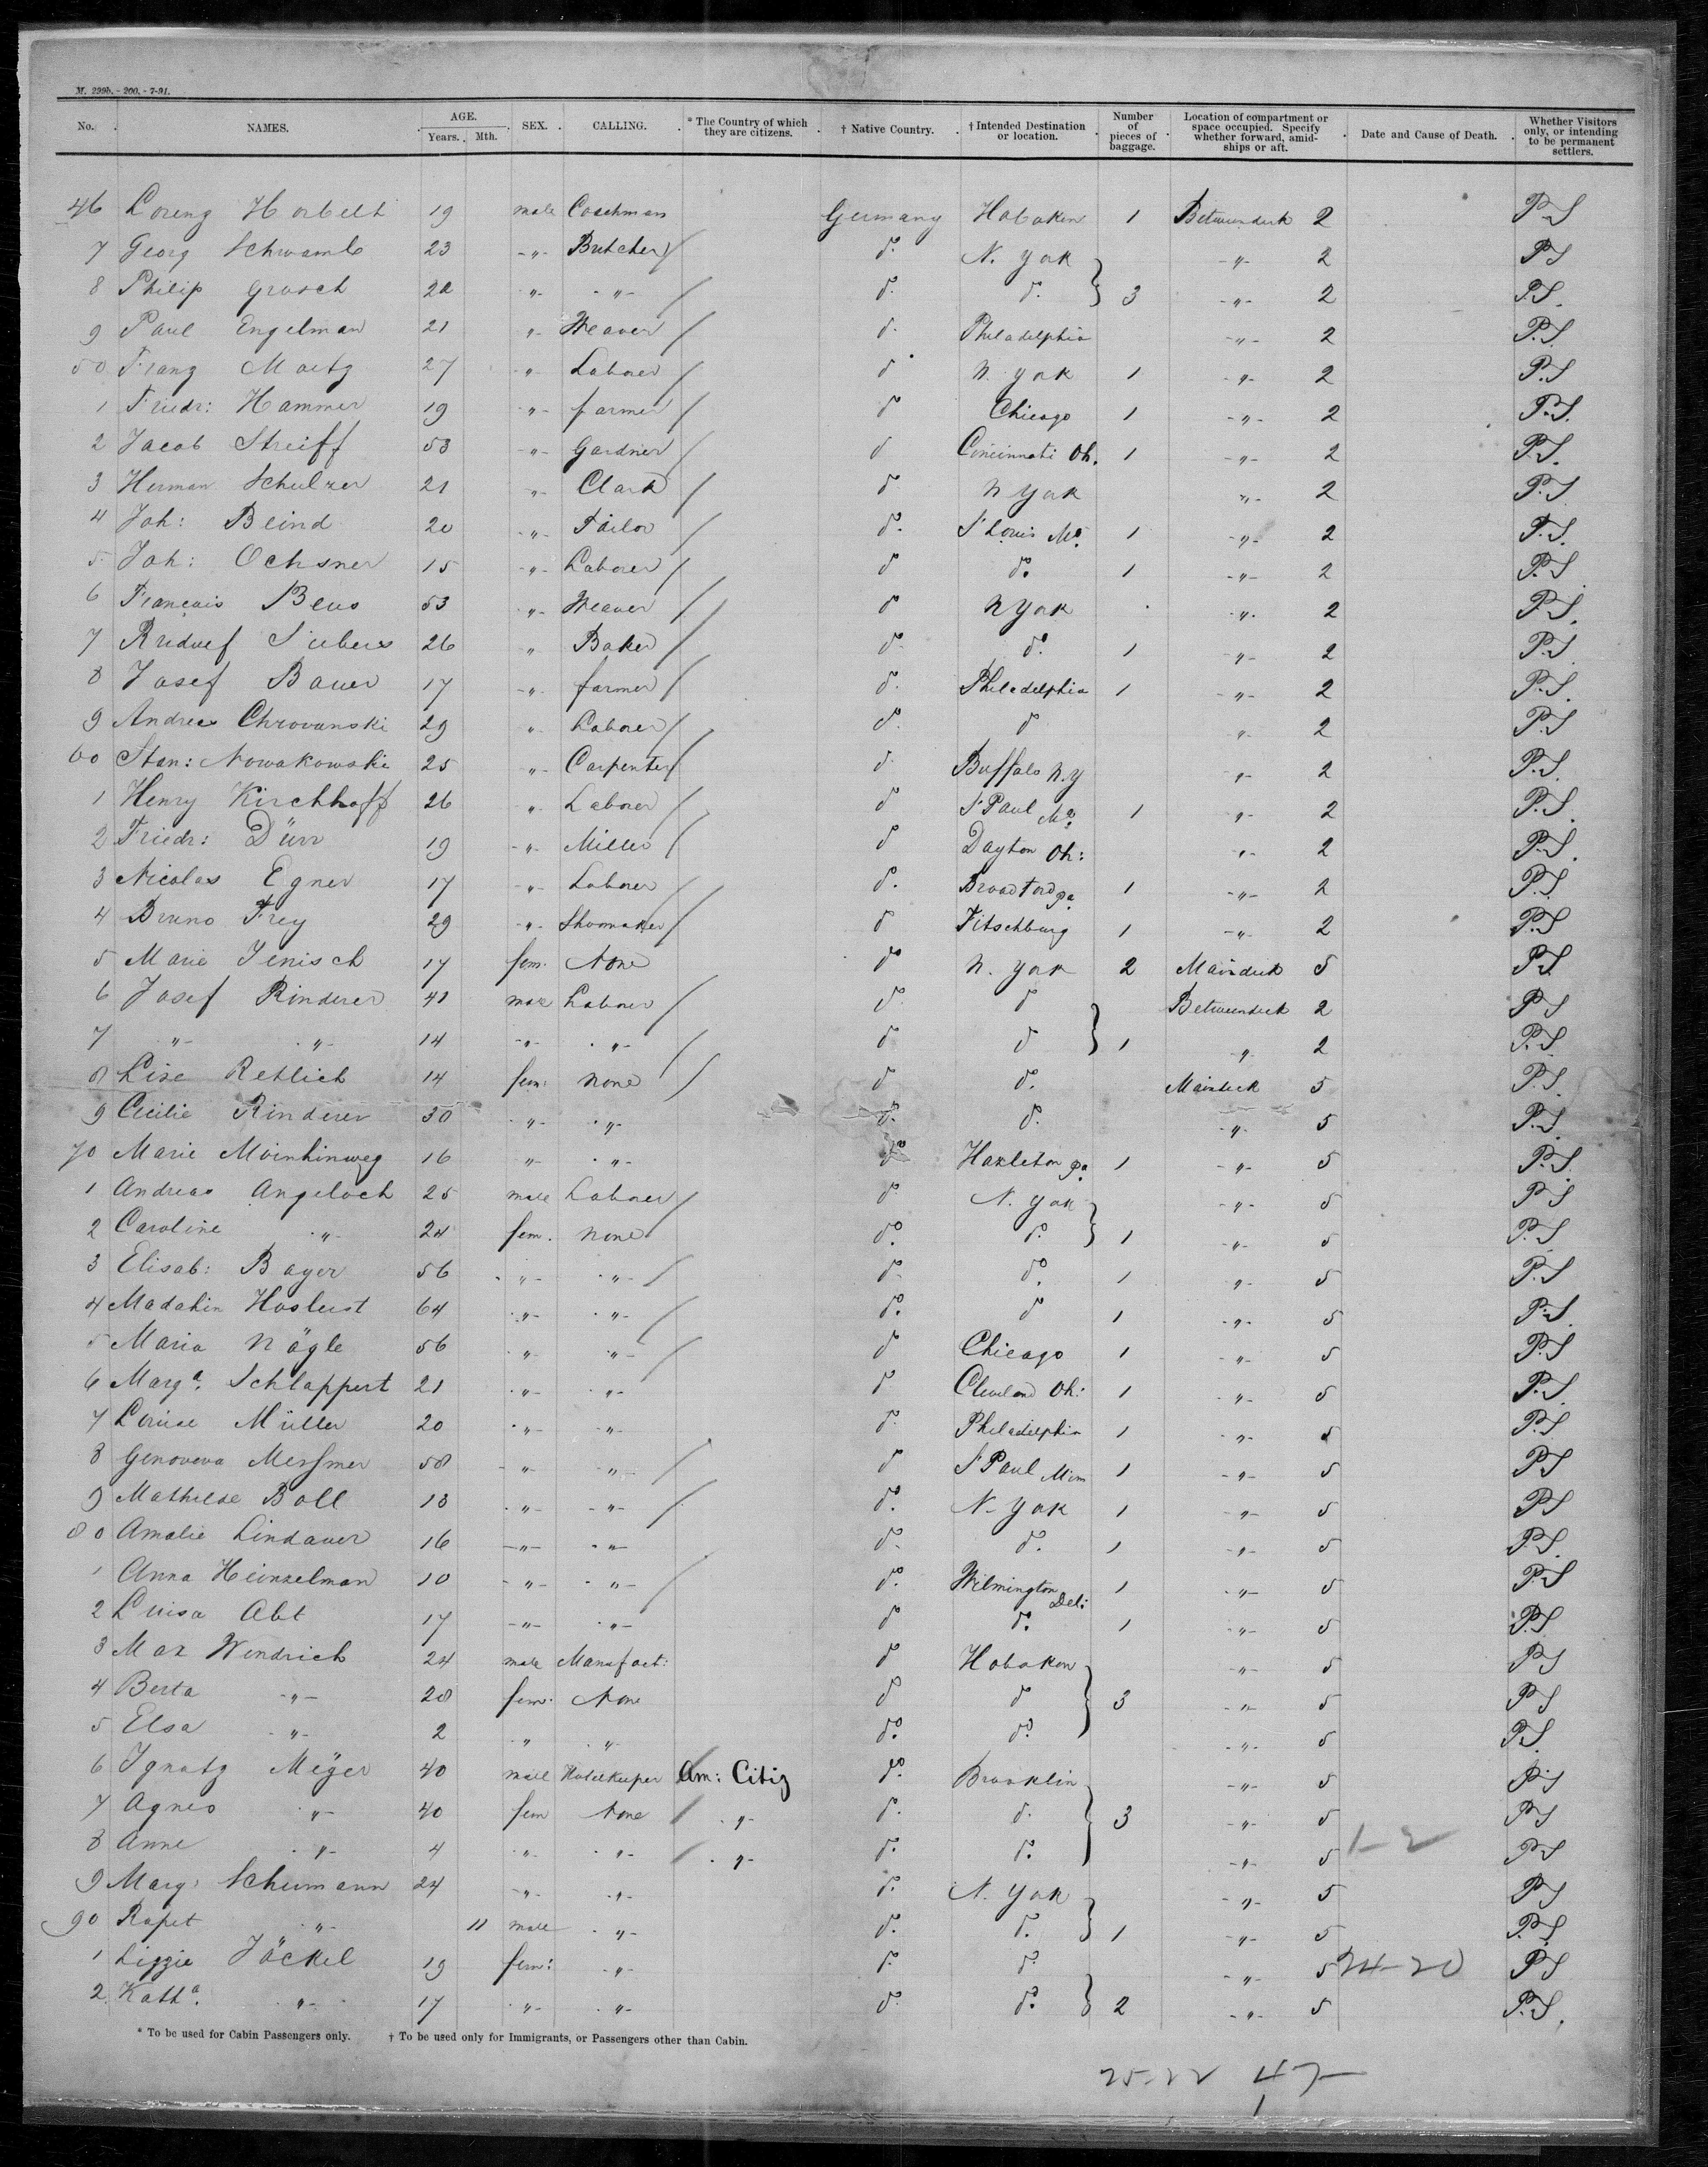 M. 299b. - 200. - 7-91.
No. NAMES. AGE. Years. Mth. SEX. CALLING. * The Country of which they are citizens. † Native Country. † Intended Destination or location. Number of pieces of baggage. Location of compartment or space occupied. Specify whether forward, amidships or aft. Date and Cause of Death. Whether Visitors only, or intending to be permanent settlers.
46 Lorenz Horbelt 19 male Coachman Germany Hoboken 1 Betweendeck 2 P.S
7 Georg Schwamb 23 -"- Butcher / do. N. York -"- 2 P.S
8 Philip Grosch 22 -"- -"- / do. do. } 3 -"- 2 P.S.
9 Paul Engelman 21 -"- Weaver / do. Philadelphia -"- 2 P.S.
50 Franz Moetz 27 -"- Laborer / do N. York 1 -"- 2 P.S
1 Friedr: Hammer 19 -"- farmer / do Chicago 1 -"- 2 P.S.
2 Jacob Streiff 53 -"- Gardner / do Cincinnati Oh. 1 -"- 2 P.S.
3 Herman Schulzer 21 -"- Clark / do N York -"- 2 P.S
4 Joh: Blind 20 -"- Tailor / do. S Louis Mo. 1 -"- 2 P.S.
5 Joh: Ochsner 15 -"- Laborer / do do. 1 -"- 2 P.S
6 François Beus 53 -"- Weaver / do N York -"- 2 P.S.
7 Rudolf Siebers 26 " Baker / do. do. 1 -"- 2 P.S
8 Josef Bauer 17 -"- farmer / do. Philadelphia 1 -"- 2 P.S.
9 Andreas Chrovanski 29 " Laborer / do. do -"- 2 P.S
60 Stan: Nowakowski 25 -"- Carpenter / do. Buffalo N.Y -"- 2 P.S.
1 Henry Kirchhoff 26 " Laborer / do S Paul Mo. 1 -"- 2 P.S.
2 Friedr: Dürr 19 -"- Miller / do Dayton Oh: -"- 2 P.S.
3 Nicolas Egner 17 -"- Laborer / do. Broadford Pa. 1 -"- 2 P.S
4 Bruno Frey 29 -"- Shomaker / do Fitschburg 1 -"- 2 P.S
5 Marie Jenisch 17 fem. None do N. York 2 Maindeck 5 P.S.
6 Josef Rinderer 41 male Laborer / do. do Betweendeck 2 P.S
7 -"- -"- 14 -"- -"- / do. do } 1 -"- 2 P.S
8 Lise Retlich 14 fem: none / do do. Maindeck 5 P.S.
9 Cecilie Rinderer 30 -"- -"- do. do. -"- 5 P.S.
70 Marie Moinhinweg 16 -"- -"- do Hazleton Pa. 1 -"- 5 P.S.
1 Andreas Angeloch 25 male Laborer / do N. York -"- 5 P.S
2 Caroline -"- 24 fem. none do. do. } 1 -"- 5 P.S
3 Elisab: Bager 56 -"- -"- / do. do. 1 -"- 5 P.S
4 Madahin Hoslust 64 -"- -"- / do. do 1 -"- 5 P.S.
5 Maria Nägle 56 -"- -"- / do Chicago 1 -"- 5 P.S
6 Marga. Schlappert 21 -"- -"- do Cleveland Oh: 1 -"- 5 P.S.
7 Louise Müller 20 -"- -"- do. Philadelphia 1 -"- 5 P.S.
8 Genoveva Messmer 58 -"- -"- / do S Paul Minn 1 -"- 5 P.S
9 Mathilde Boll 18 -"- -"- / do. N. York 1 -"- 5 P.S
80 Amalie Lindauer 16 -"- -"- do. do. 1 -"- 5 P.S.
1 Anna Heinzelman 10 -"- -"- / do. Wilmington Del: 1 -"- 5 P.S
2 Luisa Abt 17 -"- -"- do do. 1 -"- 5 P.S
3 Max Wendrich 24 male Manufact: do Hoboken -"- 5 P.S
4 Berta -"- 28 fem. None do do } 3 -"- 5 P.S
5 Elsa -"- 2 -"- -"- do. do. -"- 5 P.S.
6 Ignatz Meÿer 40 male Hotelkeeper Am: Citiz do. Brooklin -"- 5 P.S
7 Agnes -"- 40 fem None / -"- do. do. } 3 -"- 5 P.S
8 Anne -"- 4 -"- -"- / -"- do. do. -"- 5 1-2 P.S
9 Marg: Scheimann 24 -"- -"- do. N. York -"- 5 P.S
90 Rapet -"- 11 male -"- do. do. } 1 -"- 5 P.S.
1 Lizzie Jöckel 19 fem: -"- do. do -"- 5 24-20 P.S
2 Katha. -"- 17 -"- -"- do. do. } 2 -"- 5 P.S.
* To be used for Cabin Passengers only. † To be used only for Immigrants, or Passengers other than Cabin.
25-22 47-
1